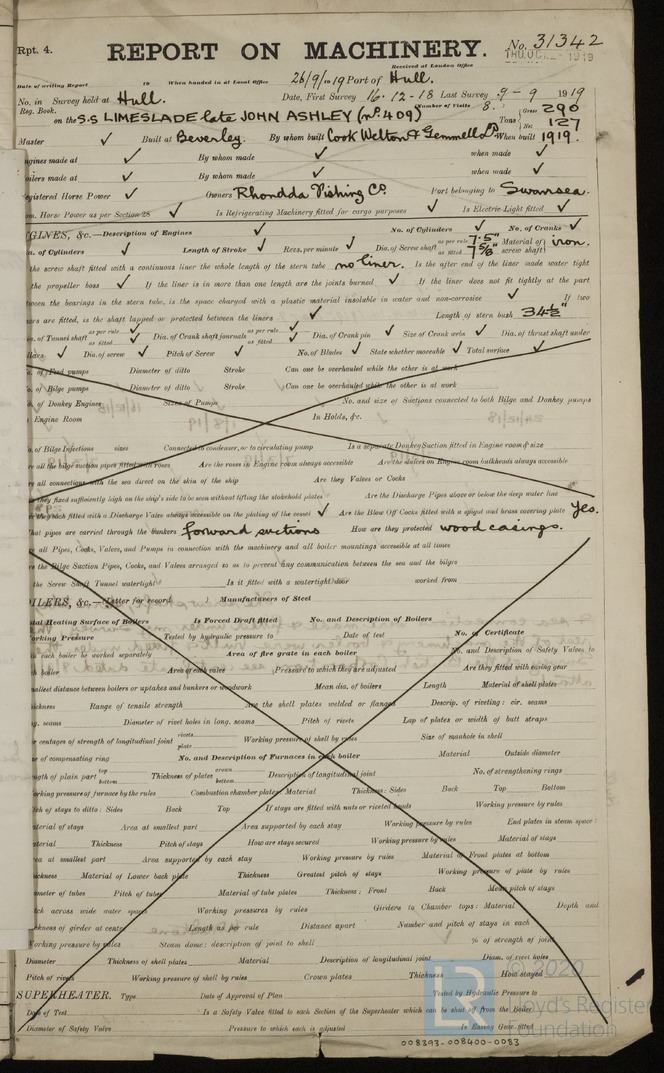 Rpt. 4. REPORT ON MACHINERY. No. 31342
Received at London Office THU. OCT. 1919
Date of writing Report 19 When handed in at Local Office 26/9/1919 Port of Hull.
No. in Survey held at Hull. Date, First Survey 16-12-18 Last Survey 9-9 1919
Reg. Book. (Number of Visits 8.)
on the S.S LIMESLADE late JOHN ASHLEY (No. 409) Tons Gross 290 Net 127
Master ✓ Built at Beverley. By whom built Cook Welton & Gemmell Ld When built 1919.
ngines made at ✓ By whom made ✓ when made ✓
oilers made at ✓ By whom made ✓ when made ✓
egistered Horse Power ✓ Owners Rhondda Fishing Co. Port belonging to Swansea.
om. Horse Power as per Section 28 ✓ Is Refrigerating Machinery fitted for cargo purposes ✓ Is Electric Light fitted ✓
GINES, &c.—Description of Engines ✓ No. of Cylinders ✓ No. of Cranks ✓
a. of Cylinders ✓ Length of Stroke ✓ Revs. per minute ✓ Dia. of Screw shaft as per rule 7.5" as fitted 7 5/8" Material of screw shaft iron.
the screw shaft fitted with a continuous liner the whole length of the stern tube no liner. Is the after end of the liner made water tight
the propeller boss ✓ If the liner is in more than one length are the joints burned ✓ If the liner does not fit tightly at the part
tween the bearings in the stern tube, is the space charged with a plastic material insoluble in water and non-corrosive ✓ If two
ers are fitted, is the shaft lapped or protected between the liners ✓ Length of stern bush 34½"
a. of Tunnel shaft as per rule as fitted ✓ Dia. of Crank shaft journals as per rule as fitted ✓ Dia. of Crank pin ✓ Size of Crank webs ✓ Dia. of thrust shaft under
llars ✓ Dia. of screw ✓ Pitch of Screw ✓ No. of Blades ✓ State whether moveable ✓ Total surface ✓
o. of Feed pumps Diameter of ditto Stroke Can one be overhauled while the other is at work
o. of Bilge pumps Diameter of ditto Stroke Can one be overhauled while the other is at work
o. of Donkey Engines Sizes of Pumps No. and size of Suctions connected to both Bilge and Donkey pumps
Engine Room In Holds, &c.
o. of Bilge Injections sizes Connected to condenser, or to circulating pump Is a separate Donkey Suction fitted in Engine room & size
re all the bilge suction pipes fitted with roses Are the roses in Engine room always accessible Are the sluices on Engine room bulkheads always accessible
re all connections with the sea direct on the skin of the ship Are they Valves or Cocks
they fixed sufficiently high on the ship's side to be seen without lifting the stokehold plates Are the Discharge Pipes above or below the deep water line
e they each fitted with a Discharge Valve always accessible on the plating of the vessel ✓ Are the Blow Off Cocks fitted with a spigot and brass covering plate Yes.
hat pipes are carried through the bunkers forward suctions How are they protected wood casings.
re all Pipes, Cocks, Valves, and Pumps in connection with the machinery and all boiler mountings accessible at all times
re the Bilge Suction Pipes, Cocks, and Valves arranged so as to prevent any communication between the sea and the bilges
the Screw Shaft Tunnel watertight Is it fitted with a watertight door worked from
ILERS, &c.—(Letter for record ) Manufacturers of Steel
tal Heating Surface of Boilers Is Forced Draft fitted No. and Description of Boilers
orking Pressure Tested by hydraulic pressure to Date of test No. of Certificate
n each boiler be worked separately Area of fire grate in each boiler No. and Description of Safety Valves to
h boiler Area of each valve Pressure to which they are adjusted Are they fitted with easing gear
mallest distance between boilers or uptakes and bunkers or woodwork Mean dia. of boilers Length Material of shell plates
hickness Range of tensile strength Are the shell plates welded or flanged Descrip. of riveting: cir. seams
ng. seams Diameter of rivet holes in long. seams Pitch of rivets Lap of plates or width of butt straps
er centages of strength of longitudinal joint rivets plate Working pressure of shell by rules Size of manhole in shell
e of compensating ring No. and Description of Furnaces in each boiler Material Outside diameter
ngth of plain part top bottom Thickness of plates crown bottom Description of longitudinal joint No. of strengthening rings
orking pressure of furnace by the rules Combustion chamber plates: Material Thickness: Sides Back Top Bottom
tch of stays to ditto: Sides Back Top If stays are fitted with nuts or riveted heads Working pressure by rules
aterial of stays Area at smallest part Area supported by each stay Working pressure by rules End plates in steam space:
aterial Thickness Pitch of stays How are stays secured Working pressure by rules Material of stays
ea at smallest part Area supported by each stay Working pressure by rules Material of Front plates at bottom
ickness Material of Lower back plate Thickness Greatest pitch of stays Working pressure of plate by rules
ameter of tubes Pitch of tubes Material of tube plates Thickness: Front Back Mean pitch of stays
tch across wide water spaces Working pressures by rules Girders to Chamber tops: Material Depth and
ickness of girder at centre Length as per rule Distance apart Number and pitch of stays in each
Working pressure by rules Steam dome: description of joint to shell % of strength of joint
Diameter Thickness of shell plates Material Description of longitudinal joint Diam. of rivet holes
Pitch of rivets Working pressure of shell by rules Crown plates Thickness How stayed
SUPERHEATER. Type Date of Approval of Plan Tested by Hydraulic Pressure to
Date of Test Is a Safety Valve fitted to each Section of the Superheater which can be shut off from the Boiler
Diameter of Safety Valve Pressure to which each is adjusted Is Easing Gear fitted
© 2020
Lloyd's Register
Foundation
008393-008400-0083